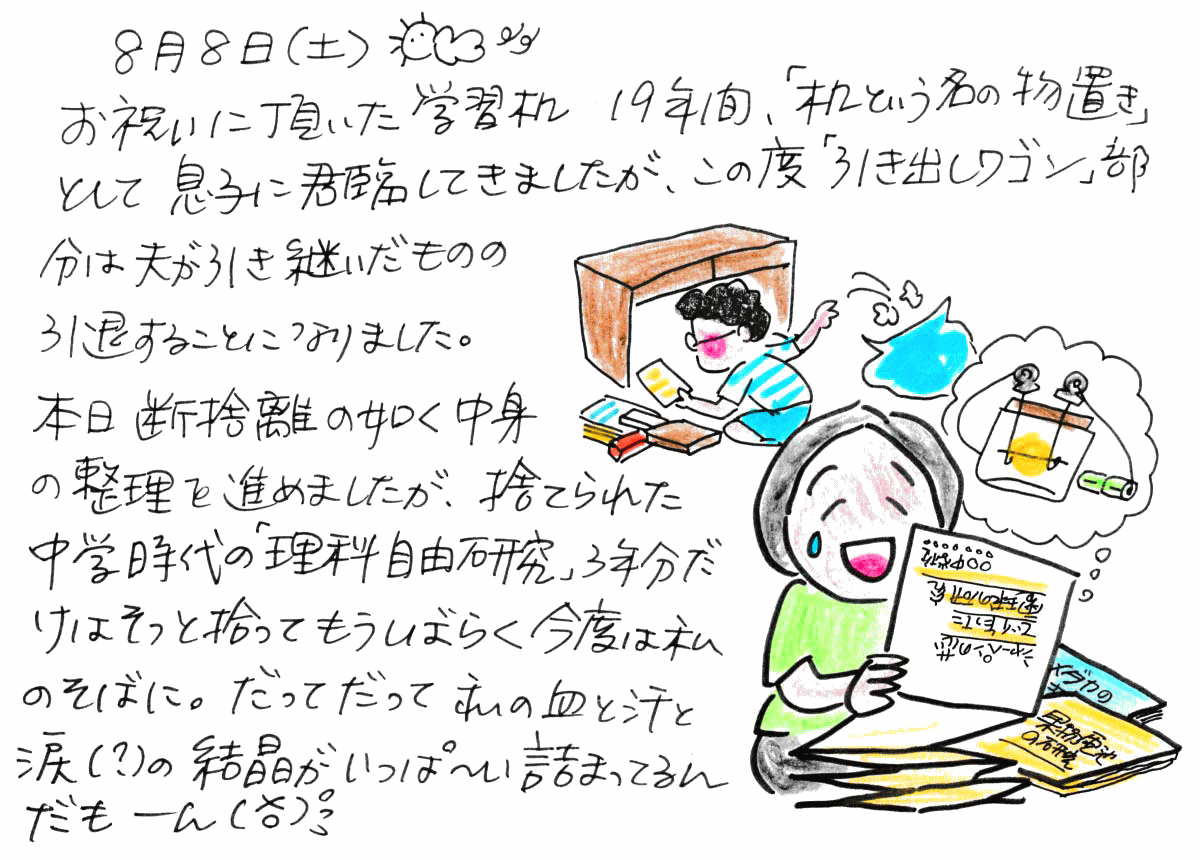 8月8日(土)
お祝いに頂いた学習机 19年間、「机という名の物置き」
として息子に君臨してきましたが、この度「引き出しワゴン」部
分は夫が引き継いだものの
引退することになりました。
本日断捨離の如く中身
の整理を進めましたが、捨てられた
中学時代の「理科自由研究」3年分だ
けはそっと拾ってもうしばらく今度は私
のそばに。だってだって私の血と汗と
涙(?)の結晶がいっぱ〜い詰まってるん
だもーん(笑)。
シャーペンのしん
でつくった
電球の研究
メダカの
果物電池
の研究